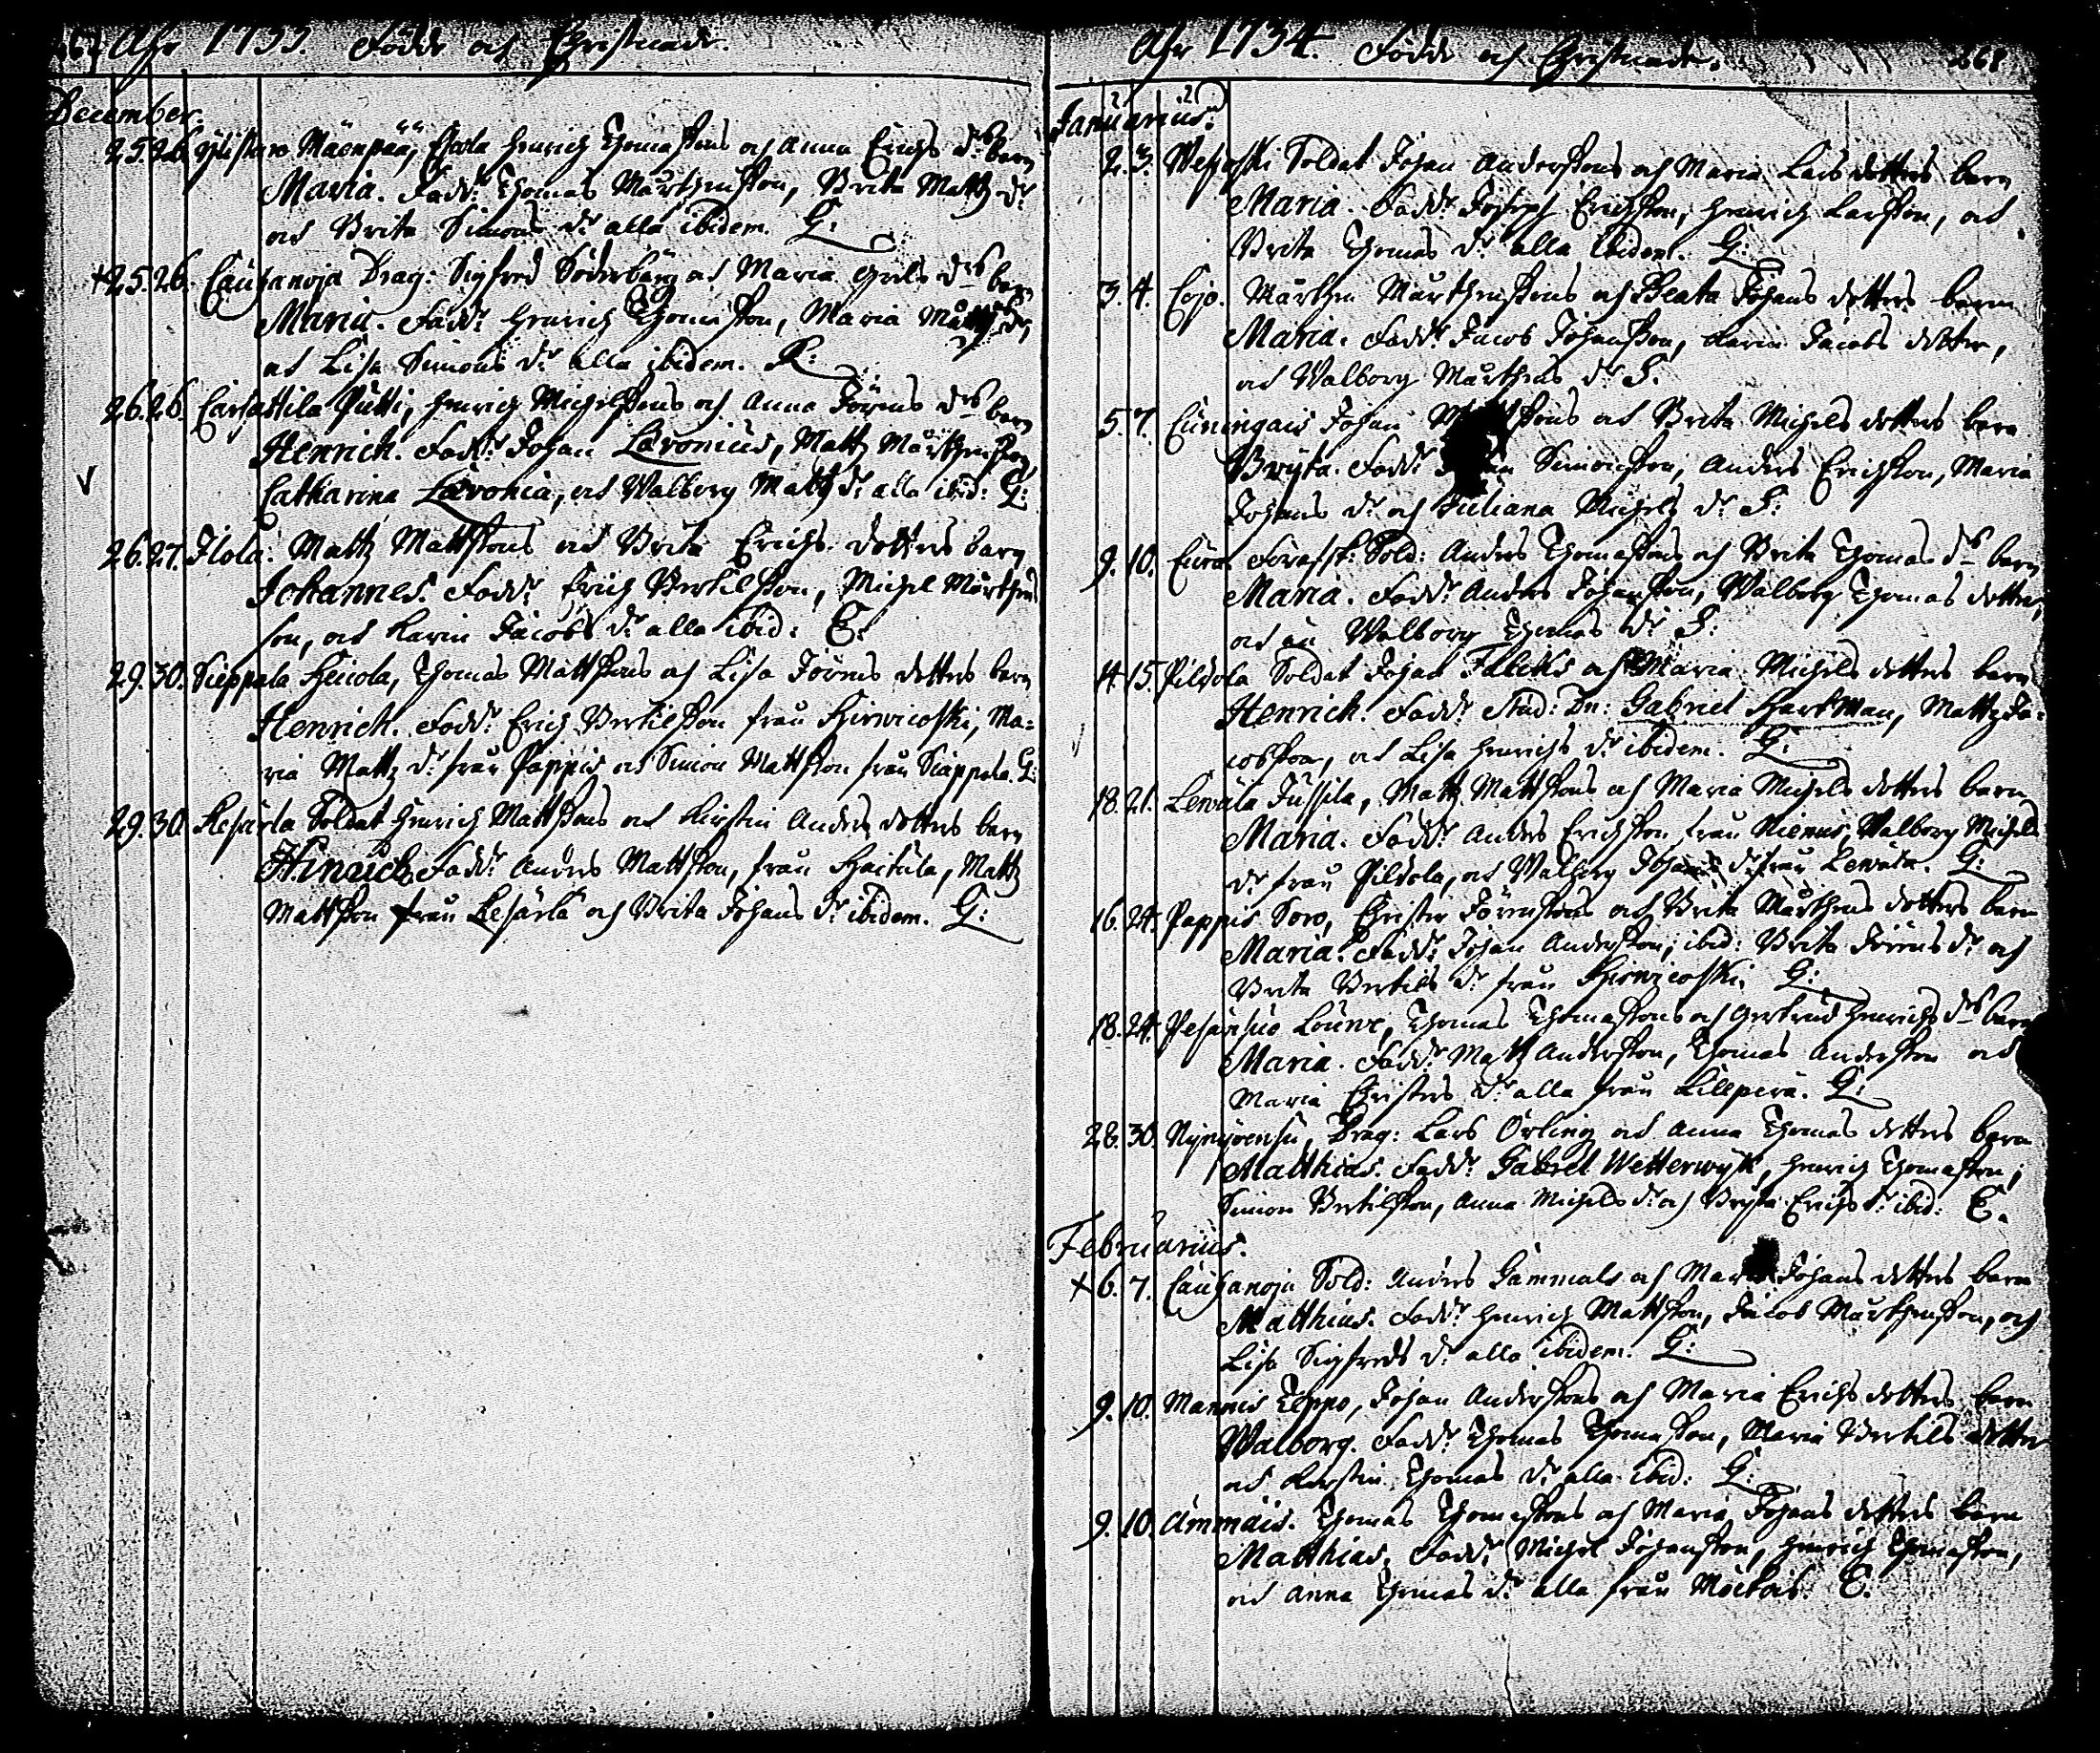 267 Åhr 1733. Födde och Christnade.
December.
25. 26. Ylistaro Mäenpää, Eskola Henrich Thomassons och Anna Erichs drs barn
Maria. Fadd: Thomas Mårthensson, Brita Matz dr
och Brita Simons dr alla ibidem. G:
+25. 26. Cauhanoja Drag: Sigfred Söderberg och Maria Grels drs barn
Maria. Fadd: Henrich Thomasson, Maria
och Lisa Simons dr alla ibidem.
26. 26. Carhattila Putti, Henrich Michelssons och Anna Jörens drs barn
Henrich. Fadd: Johan Lavonius, Matz Mårthensson,
Catharina Lavonia, och Walborg Matz dr alla ibid: G:
26. 27. Ilola: Mattz Mattssons och Brita Erichs dotters barn
Johannes. Fadd: Erich Bertilsson, Michel Mårthens
son, och Karin Jacobs dr alla ibid: E.
29. 30. Sieppala Heicola, Thomas Mattssons och Lisa Jörens dotters barn
Henrich. Fadd: Erich Bertilsson från Hirwicoski, Ma=
ria Mattz dr från Pappis och Simon Mattsson från Sieppala. G:
29. 30. Kesärla Soldat Henrich Mattssons och Kirstin Anders dotters barn
Hinrich. Fadd: Anders Mattsson, från Haitula, Mattz
Mattsson från Kesärla och Brita Johans dr ibidem. G:
Åhr 1734. Födde och Christnade. 268
Januarius.
2. 3. Soldat Johan Anderssons och Maria Lars dotters barn
Maria. Fadd: Joseph Erichsson, Henrich Larsson, och
Brita Thomas dr alla ibidem. G:
3. 4. Cojo. Mårthen Mårthenssons och Beata Johans dotters barn
Maria. Fadd: Jacob Johansson, Karin Jacobs dotter,
och Walborg Mårthens dr S.
5. 7. Cuningais Johan och Brita Michels dotters barn
Bryta. Fadd: Simonsson, Anders Erichsson, Maria
Johans dr och Juliana Michels dr S:
9. 10. Cura Sold: Anders Thomassons och Brita Thomas drs barn
Maria. Fadd: Anders Johansson, Walborg Thomas dotter,
och än Walborg Thomas dr S:
14. 15. Pildola Soldat Johan Falcks och Maria Michels dotters barn
Henrich. Fadd: Stud: Dn: Gabriel Hartman, Mattz Ja=
cobsson, och Lisa Henrichs dr ibidem. G:
18. 21. Lewälä Jussila, Matz Mattssons och Maria Michels dotters barn
Maria. Fadd: Anders Erichsson från Niemis, Walborg Michels
dr från Pildola, och Walborg Johans dr från Lewälä. G:
16. 24. Pappis Soro, Christer Jörenssons och Brita Mårthens dotters barn
Maria. Fadd: Johan Andersson, ibid: Brita Jörens dr och
Brita Bertils dr från Hirwicoski. G:
18. 24. Pesäsuo Loune, Thomas Thomassons och Gertrud Henrichs drs barn
Maria. Fadd: Matz Andersson, Thomas Andersson och
Maria Christers dr alla från Lillperä. G:
28. 30. Drag: Lars Örling och Anna Thomas dotters barn
Matthias. Fadd: Gabriel Wetterwyk, Henrich Thomasson,
Simon Bertilsson, Anna Michels dr och Bryta Erichs dr ibid: E.
Februarius.
+ 6. 7. Cauhanoja Sold: Anders Gammals och Maria Johans dotters barn
Matthias. Fadd: Henrich Mattsson, Jacob Mårthensson, och
Lisa Sigfreds dr alla ibidem. G:
9. 10. Mannis Teppo, Johan Anderssons och Maria Erichs dotters barn
Walborg. Fadd: Thomas Thomasson, Maria Bertils dotter
och Kirstin Thomas dr alla ibid: G:
9. 10. Ammais. Thomas Thomassons och Maria Johans dotters barn
Matthias. Fadd: Michel Johansson, Hinrich Thomasson,
och Anna Thomas dr alla från Möckois. E.